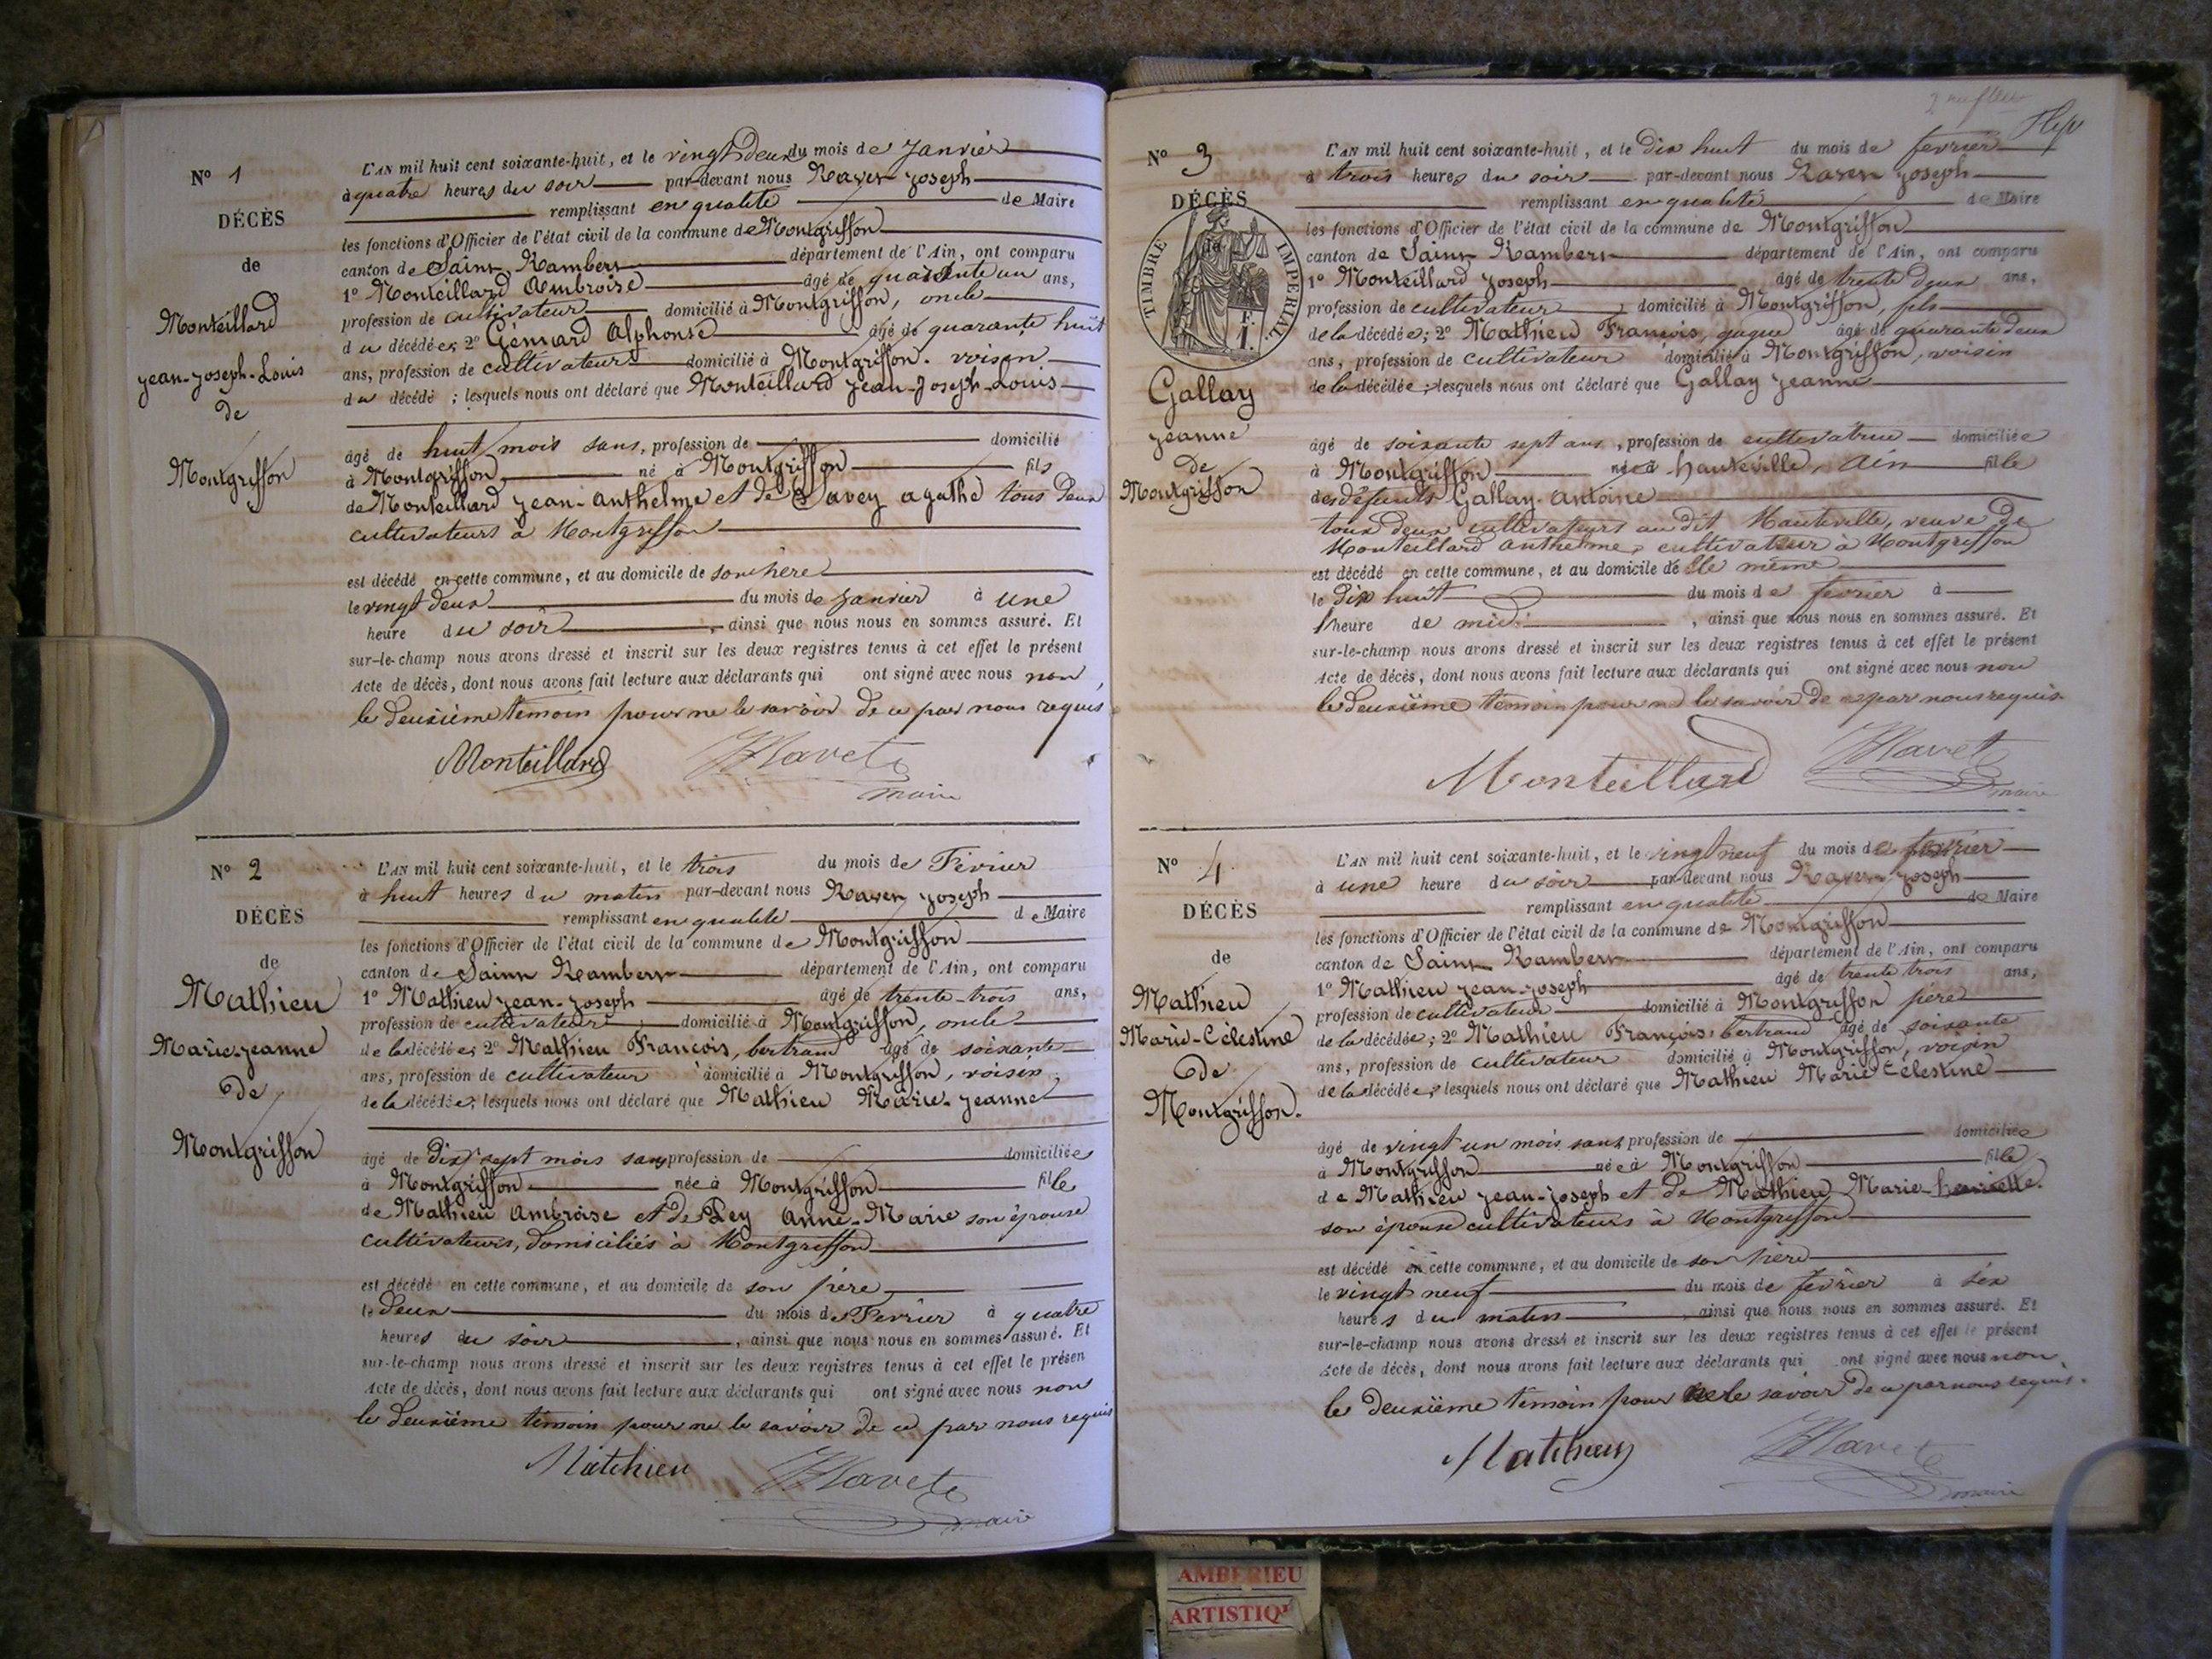 N° 1
DÉCÈS
de
Monteillard
Jean-Joseph-Louis
de
Montgriffon
L'AN mil huit cent soixante-huit, et le vingt deux du mois de Janvier
à quatre heures du soir par-devant nous Ravet Joseph
remplissant en qualité de Maire
les fonctions d'Officier de l'état civil de la commune de Montgriffon
canton de Saint Rambert département de l'Ain, ont comparu
1° Monteillard Ambroise âgé de quarante un ans,
profession de cultivateur domicilié à Montgriffon, oncle
du décédé; 2° Génard Alphonse âgé de quarante huit
ans, profession de cultivateur domicilié à Montgriffon. voisin
du décédé ; lesquels nous ont déclaré que Monteillard Jean-Joseph-Louis
âgé de huit mois sans, profession de domicilié
à Montgriffon né à Montgriffon fils
de Monteillard Jean-Anthelme et de Savey Agathe tous deux
cultivateurs à Montgriffon
est décédé en cette commune, et au domicile de son père
le vingt deux du mois de Janvier à une
heure du soir, ainsi que nous nous en sommes assuré. Et
sur-le-champ nous avons dressé et inscrit sur les deux registres tenus à cet effet le présent
Acte de décès, dont nous avons fait lecture aux déclarants qui ont signé avec nous non,
le deuxième témoin pour ne le savoir de ce par nous requis
Monteillard Ravet
maire
N° 2
DÉCÈS
de
Mathieu
Marie-Jeanne
de
Montgriffon
L'AN mil huit cent soixante-huit, et le trois du mois de Février
à huit heures du matin par-devant nous Ravet Joseph
remplissant en qualité de Maire
les fonctions d'Officier de l'état civil de la commune de Montgriffon
canton de Saint Rambert département de l'Ain, ont comparu
1° Mathieu Jean-Joseph âgé de trente-trois ans,
profession de cultivateur domicilié à Montgriffon, oncle
de la décédée; 2° Mathieu François, bertrand âgé de soixante
ans, profession de cultivateur domicilié à Montgriffon, voisin
de la décédée; lesquels nous ont déclaré que Mathieu Marie-Jeanne
âgé de dix sept mois sans profession de domiciliée
à Montgriffon née à Montgriffon fille
de Mathieu Ambroise et de Ley Anne-Marie son épouse
cultivateurs, domiciliés à Montgriffon
est décédé en cette commune, et au domicile de son père
le deux du mois de Février à quatre
heures du soir, ainsi que nous nous en sommes assuré. Et
sur-le-champ nous avons dressé et inscrit sur les deux registres tenus à cet effet le présen
Acte de décès, dont nous avons fait lecture aux déclarants qui ont signé avec nous non
le deuxième témoin pour ne le savoir de ce par nous requis
Mathieu Ravet
maire
N° 3
DÉCÈS
TIMBRE IMPÉRIAL
Gallay
Jeanne
de
Montgriffon
L'AN mil huit cent soixante-huit, et le dix huit du mois de février
à trois heures du soir par-devant nous Ravet Joseph
remplissant en qualité de Maire
les fonctions d'Officier de l'état civil de la commune de Montgriffon
canton de Saint Rambert département de l'Ain, ont comparu
1° Monteillard Joseph âgé de trente deux ans,
profession de cultivateur domicilié à Montgriffon, fils
de la décédée; 2° Mathieu François, âgé de quarante deux
ans, profession de cultivateur domicilié à Montgriffon, voisin
de la décédée; lesquels nous ont déclaré que Gallay Jeanne
âgé de soixante sept ans, profession de cultivatrice domiciliée
à Montgriffon née à hauteville, Ain fille
des défunts Gallay-Antoine
tous deux cultivateurs au dit Hauteville, veuve de
Monteillard Anthelme, cultivateur à Montgriffon
est décédé en cette commune, et au domicile de elle même
le dix huit du mois de février à
l'heure de midi, ainsi que nous nous en sommes assuré. Et
sur-le-champ nous avons dressé et inscrit sur les deux registres tenus à cet effet le présent
Acte de décès, dont nous avons fait lecture aux déclarants qui ont signé avec nous non
le deuxième témoin pour ne le savoir de ce par nous requis.
Monteillard Ravet
maire
N° 4
DÉCÈS
de
Mathieu
Marie-Célestine
de
Montgriffon.
L'AN mil huit cent soixante-huit, et le vingt neuf du mois de février
à une heure du soir par-devant nous Ravet Joseph
remplissant en qualité de Maire
les fonctions d'Officier de l'état civil de la commune de Montgriffon
canton de Saint Rambert département de l'Ain, ont comparu
1° Mathieu Jean-Joseph âgé de trente trois ans,
profession de cultivateur domicilié à Montgriffon père
de la décédée; 2° Mathieu François, bertrand âgé de soixante
ans, profession de cultivateur domicilié à Montgriffon, voisin
de la décédée; lesquels nous ont déclaré que Mathieu Marie Célestine
âgé de vingt un mois sans profession de domiciliée
à Montgriffon née à Montgriffon fille
de Mathieu Jean-Joseph et de Mathieu Marie-henriette.
son épouse cultivateurs à Montgriffon
est décédé en cette commune, et au domicile de son père
le vingt neuf du mois de février à six
heures du matin, ainsi que nous nous en sommes assuré. Et
sur-le-champ nous avons dressé et inscrit sur les deux registres tenus à cet effet le présent
Acte de décès, dont nous avons fait lecture aux déclarants qui ont signé avec nous non,
le deuxième témoin pour ne le savoir de ce par nous requis.
Mathieu Ravet
maire
AMBERIEU
ARTISTIQ